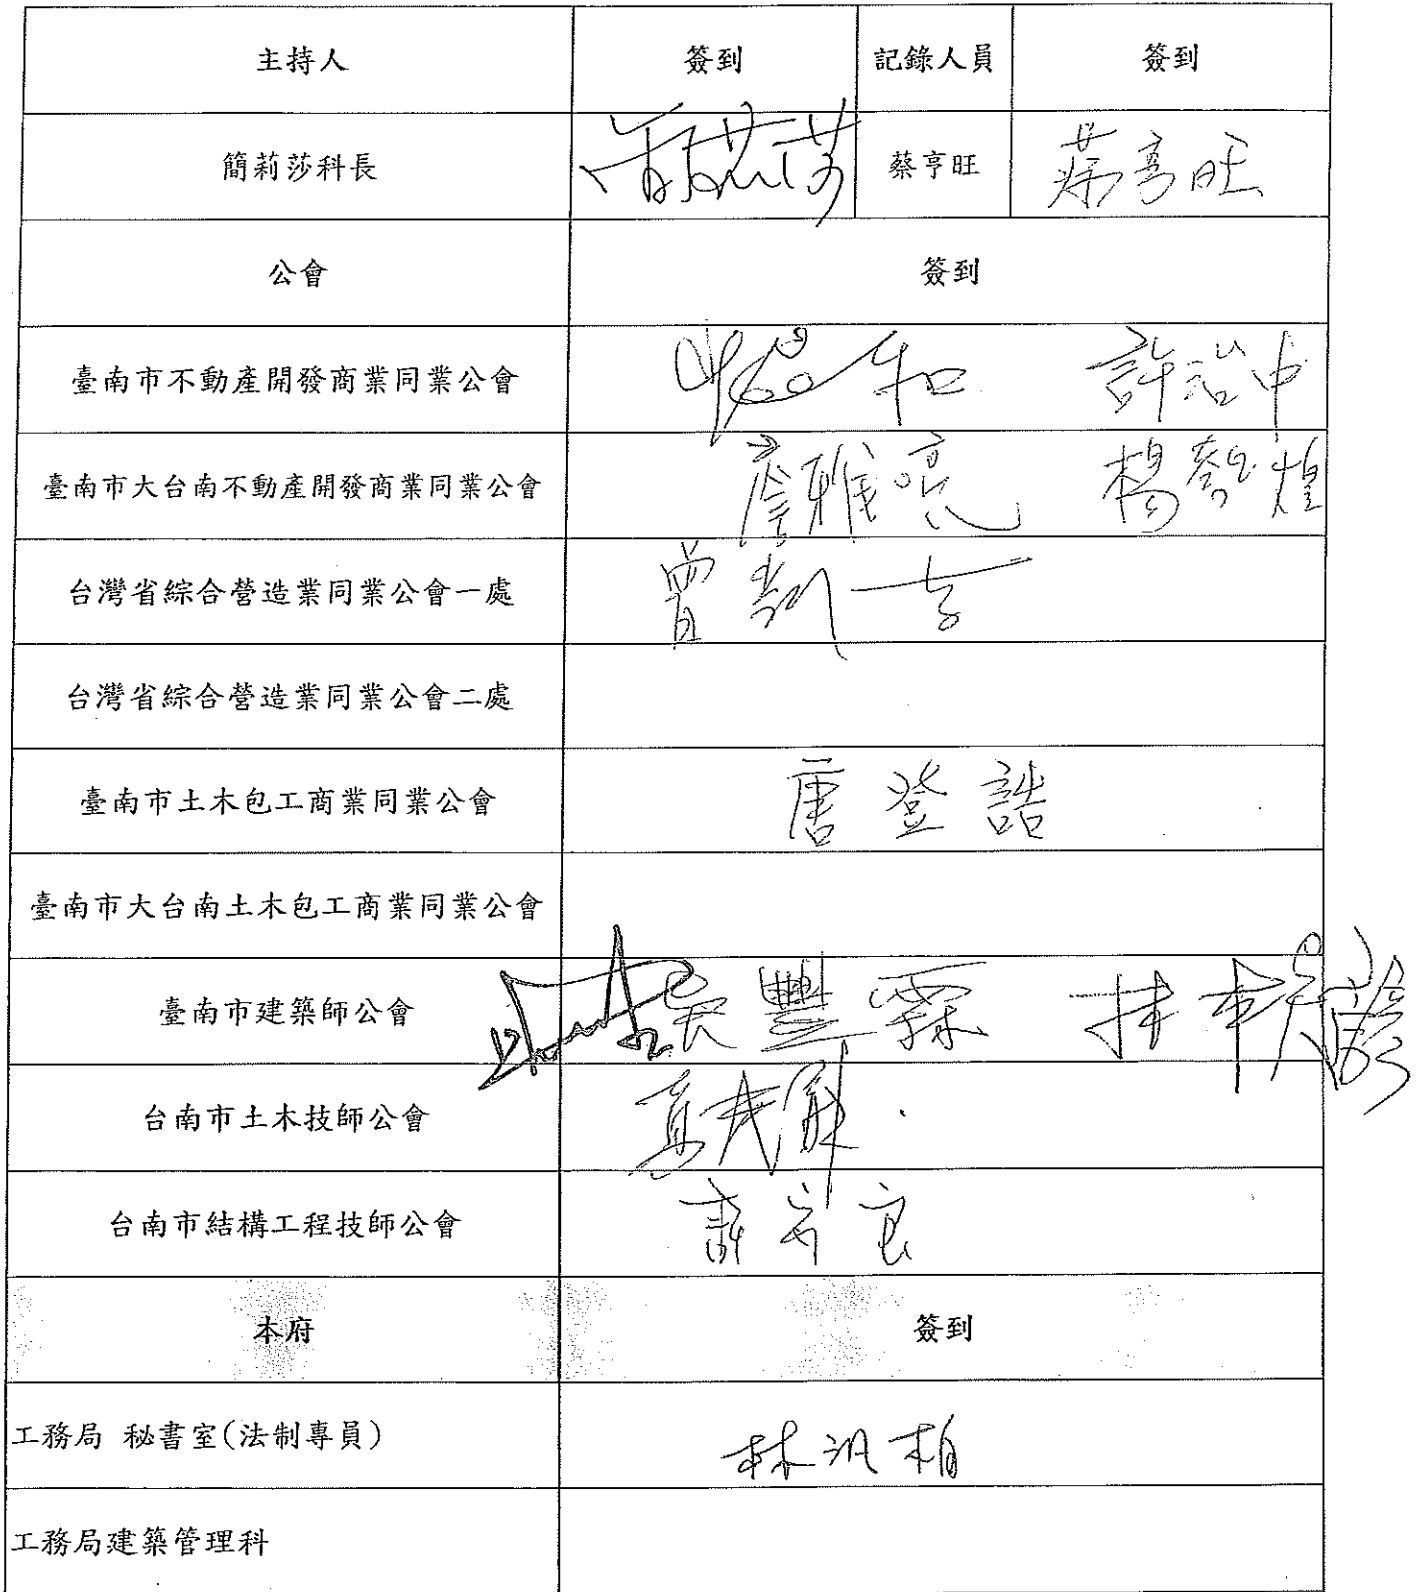 主持人 簽到 記錄人員 簽到
簡莉莎科長 簡莉莎 蔡亨旺 蔡亨旺
公會 簽到
臺南市不動產開發商業同業公會
臺南市大台南不動產開發商業同業公會 詹雅亮 楊智煌
台灣省綜合營造業同業公會一處 曾
台灣省綜合營造業同業公會二處
臺南市土木包工商業同業公會 唐登誥
臺南市大台南土木包工商業同業公會
臺南市建築師公會 吳豐霖
台南市土木技師公會
台南市結構工程技師公會
本府 簽到
工務局 秘書室(法制專員) 林汎柏
工務局建築管理科